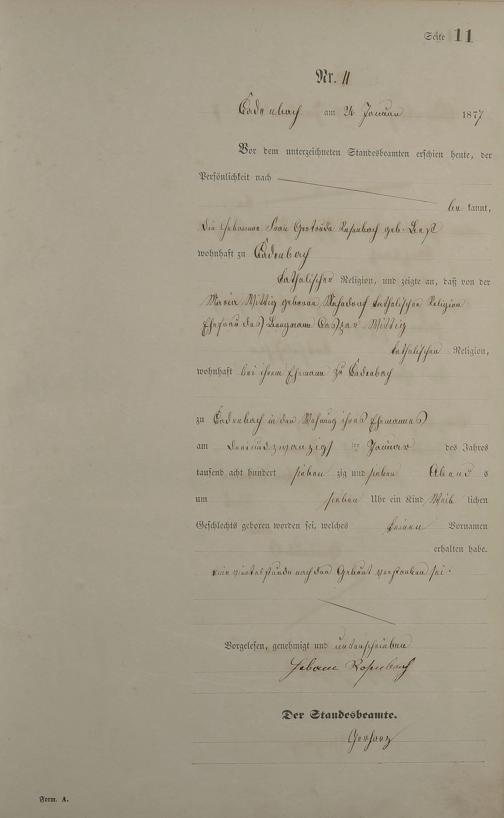 Seite 11
Nr. 11
Cadenbach am 24 Januar 1877
Vor dem unterzeichneten Standesbeamten erschien heute, der
Persönlichkeit nach
be kannt,
die Hebamme Frau Gertruda Rosenbach geb.
wohnhaft zu Cadenbach
katholischer Religion, und zeigte an, daß von der
Maria Wittig geborene katholischer Religion
Ehefrau des Bergmann Caspar Wittig
katholischer Religion,
wohnhaft bei ihrem Ehemann zu Cadenbach
zu Cadenbach in der Wohnung ihres Ehemannes
am dreiundzwanzigs ten Januar des Jahres
tausend acht hundert sieben zig und sieben Abend s
um sieben Uhr ein Kind Weib lichen
Geschlechts geboren worden sei, welches keinen Vornamen
erhalten habe.
eine viertelstunde nach der Geburt verstorben sei.
Vorgelesen, genehmigt und unterschrieben
Hebam Rosenbach
Der Standesbeamte.
Gerharz
Form. A.